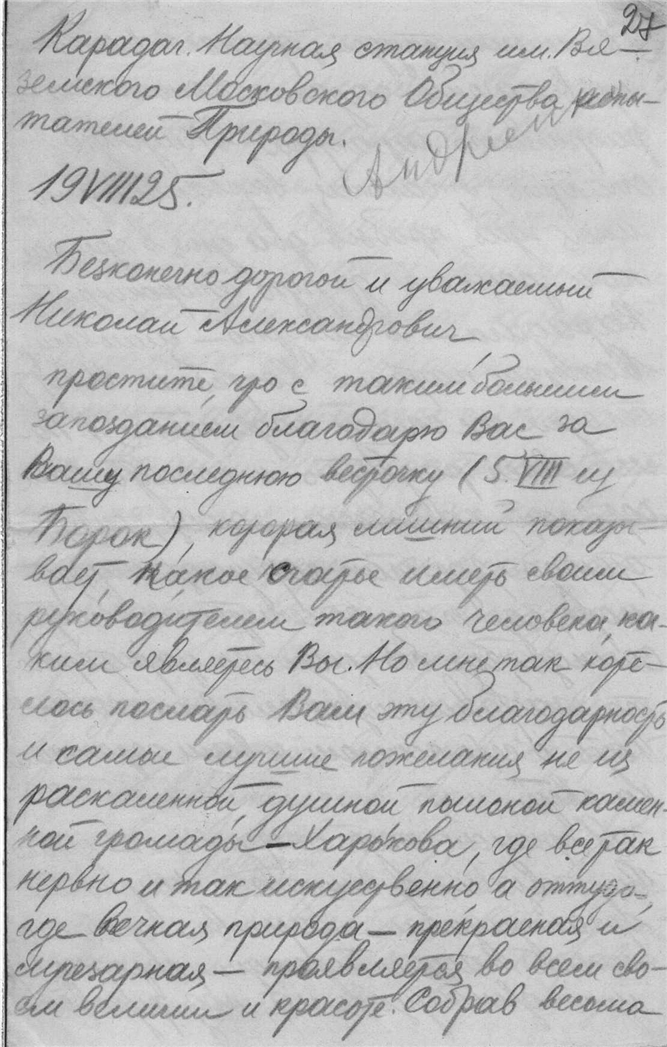 27
Карадаг. Научная станция им. Вя-
земского Московского Общества испы-
тателей Природы.
19 VIII 25.
Безконечно дорогой и уважаемый
Николай Александрович,
простите, что с таким большим
запозданием благодарю Вас за
Вашу последнюю весточку (5. VIII из
Борок), которая лишний показы-
вает какое счатье иметь своим
руководителем такого человека, ка-
ким являетесь Вы. Но мне так хоте-
лось послать Вам эту благодарность
и самые лучшие пожелания не из
раскаленной, душной пыльной камен-
ной громады — Харькова, где все так
нервно и так искуственно, а оттуда,
где вечная природа — прекрасная и
лучезарная — проявляется во всем сво-
ем величии и красоте. Собрав весьма